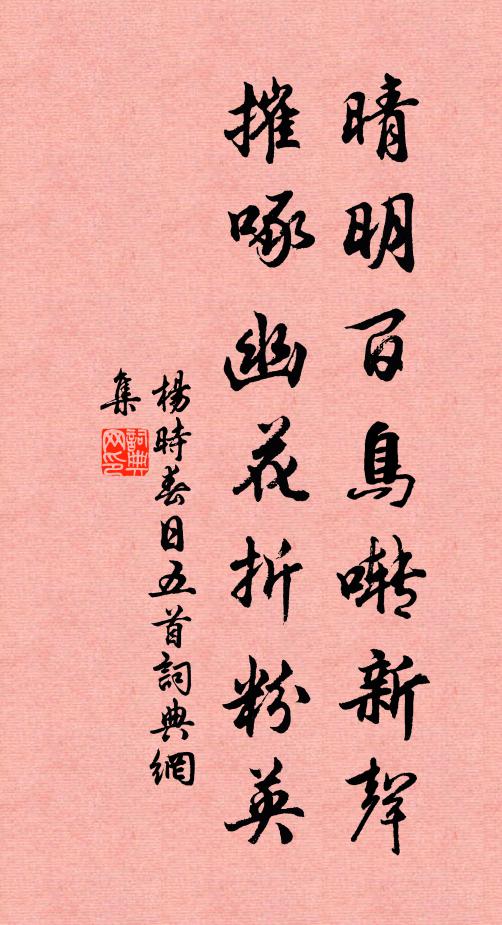 晴明百鳥囀新聲
摧啄幽花折粉英
楊時春日五首詞典網
集
詞典網印